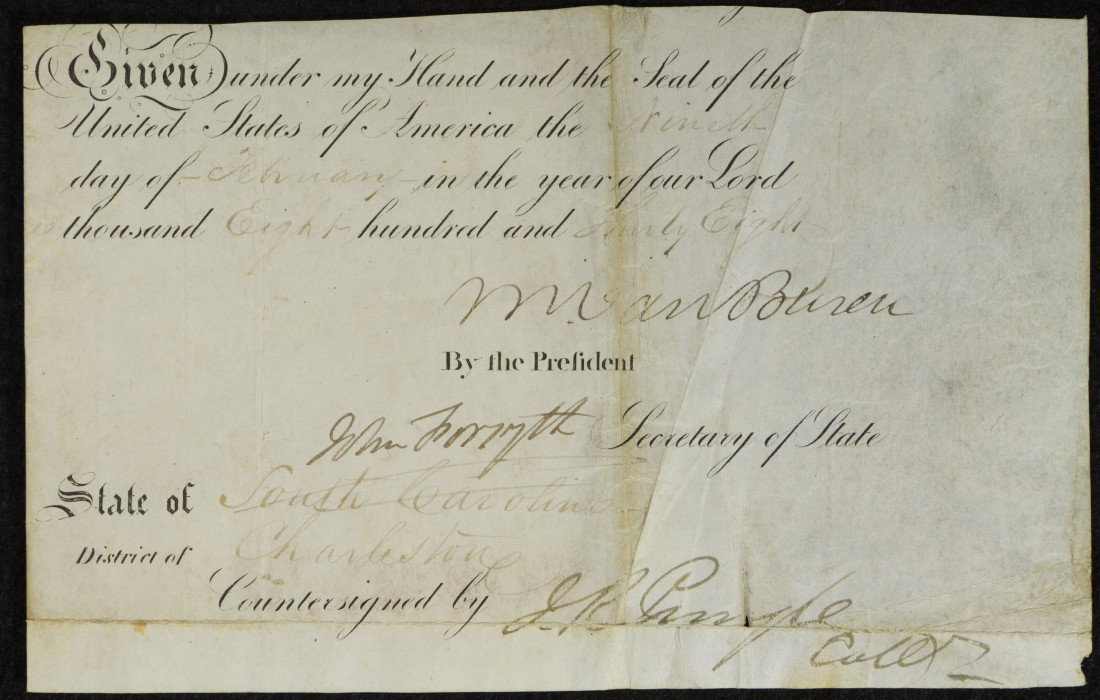 Given under my Hand and the Seal of the
United States of America the Ninth
day of February in the year of our Lord
thousand Eight hundred and Thirty Eight
M. Van Buren
By the Preſident
John Forsyth Secretary of State
State of South Carolina
District of Charleston
Countersigned by J. R. Pringle
Collr